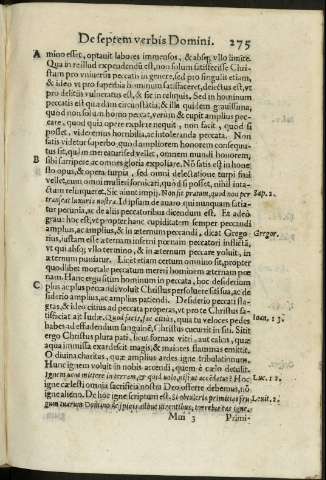 De septem verbis Domini. 275
A mino esset, optauit labores immensos, & absq; vllo limite.
Qua in re illud expendendũ est, non solum satisfecisse Chri-
stum pro vniuersis peccatis in genere, sed pro singulis etiam,
& ideo vt pro superbia hominum satisfaceret, deiectus est, vt
pro delitiis vulneratus est, & sic in reliquis. Sed in hominum
peccatis est quædam circũstãtia, & illa quidem grauissima,
quod non solum homo peccat, verùm & cupit amplius pec-
care, quod quia opere explere nequit, non facit, quod si
posset, videremus horribilia, ac intoleranda peccata. Non
satis videtur superbo, quod ampliorem honorem consequu-
tus sit, qui
vellet, omnem mundi honorem,
B sibi surripere, ac omnes gloria expoliare. Nõ satis est in hone
sto opus, & opera turpia, sed omni delectatione turpi frui
vellet, cum omni mulieri fornicari, quod si posset, nihil inta-
ctum relinqueret. Sic aiunt impij. Non sit pratum, quod non per
Sap. 2.
transeat luxuria nostra. Idipsum de auaro qui nunquam satia-
tur pecunia, ac de aliis peccatoribus dicendum est. Et adeò
graue hoc est, vt propter hanc cupiditatem semper peccandi
amplius, ac amplius, & in æternum peccandi, dicat Grego-
Gregor.
rius, iustam esse æternam inferni pœnam peccatori inflictã,
vt qui absq; vllo termino, & in æternum peccare voluit, in
æternum puniatur. Licet etiam certum omnino sit, propter
quodlibet mortale peccatum mereri hominem æternam pœ
nam. Hanc ergo sitim hominum in peccata, hoc desiderium
C plus ac plus peccadi voluit Christus persoluere siti sua, ac de
siderio amplius, ac amplius patiendi. Desiderio peccati fla-
gras, & ideo citius ad peccata properas, vt pro te Christus sa-
tisfaciat ait Iudæ. Quod facis, fac citius, quia tu veloces pedes
Ioan. 13.
habes ad effundendum sanguinẽ, Christus cucurrit in siti. Sitit
ergo Christus plura pati, sicut fornax vitri, aut calcis, quæ
aqua immissa exardescit magis, & maiores flammas emittit.
O diuina charitas, quæ amplius ardes igne tribulationum.
Hunc ignem voluit in nobis accendi, quem è cælo detulit.
Ignem veni mittere in terram, & quid volo, nisi vt accẽdatur? Hoc
Luc. 12.
igne cælesti omnia sacrificia nostra Deo offerre debemus, nõ
igne alieno. De hoc igne scriptum est, Si obtuleris primitias fru
Leuit. 2.
gum tuarum Domino de spicis adhuc virentibus, torrebis eas igne.
Mm 3 Primi-